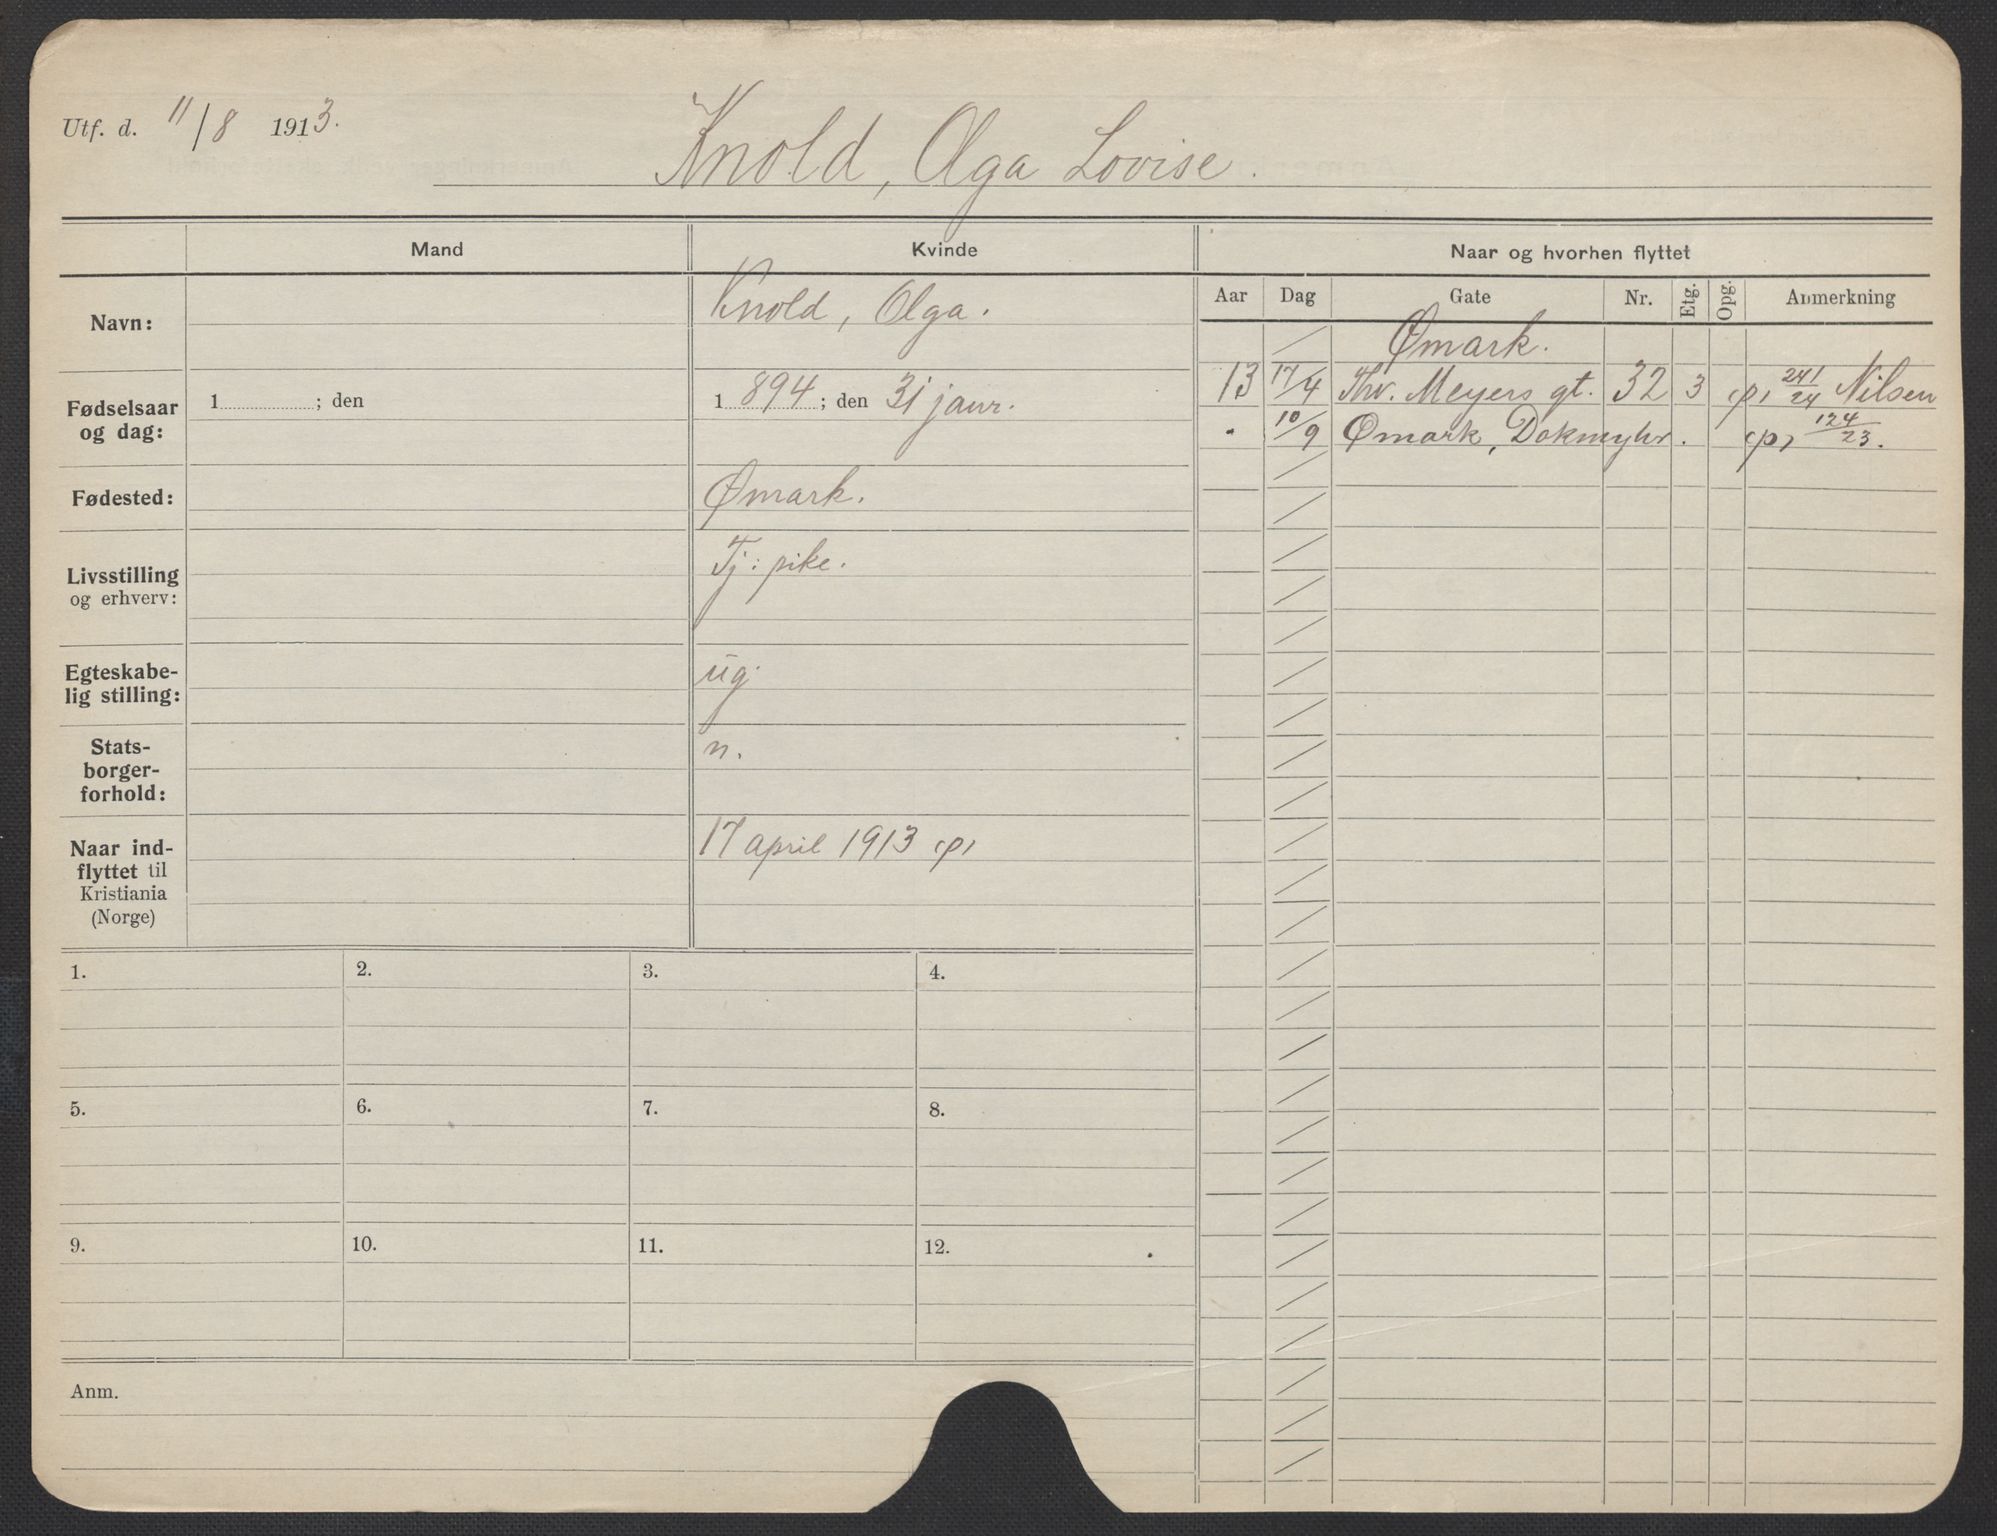 Utf. d. 11/8 1913.
Knold, Olga Lovise.
Mand
Kvinde
Naar og hvorhen flyttet
Navn:
Knold, Olga.
Fødselsaar
og dag:
1 ; den
1 894 ; den 31 janr.
Fødested:
Ømark.
Livsstilling
og erhverv:
Tj: pike.
Egteskabe-
lig stilling:
ug.
Stats-
borger-
forhold:
n.
Naar ind-
flyttet til
Kristiania
(Norge)
17 april 1913 (p)
Aar Dag Gate Nr. Etg. Opg. Anmerkning
Ømark.
13 17/4 Thv. Meyers gt. 32 3 (p) 241/24 Nilsen
" 10/9 Ømark, (p) 124/23.
1. 2. 3. 4.
5. 6. 7. 8.
9. 10. 11. 12.
Anm.